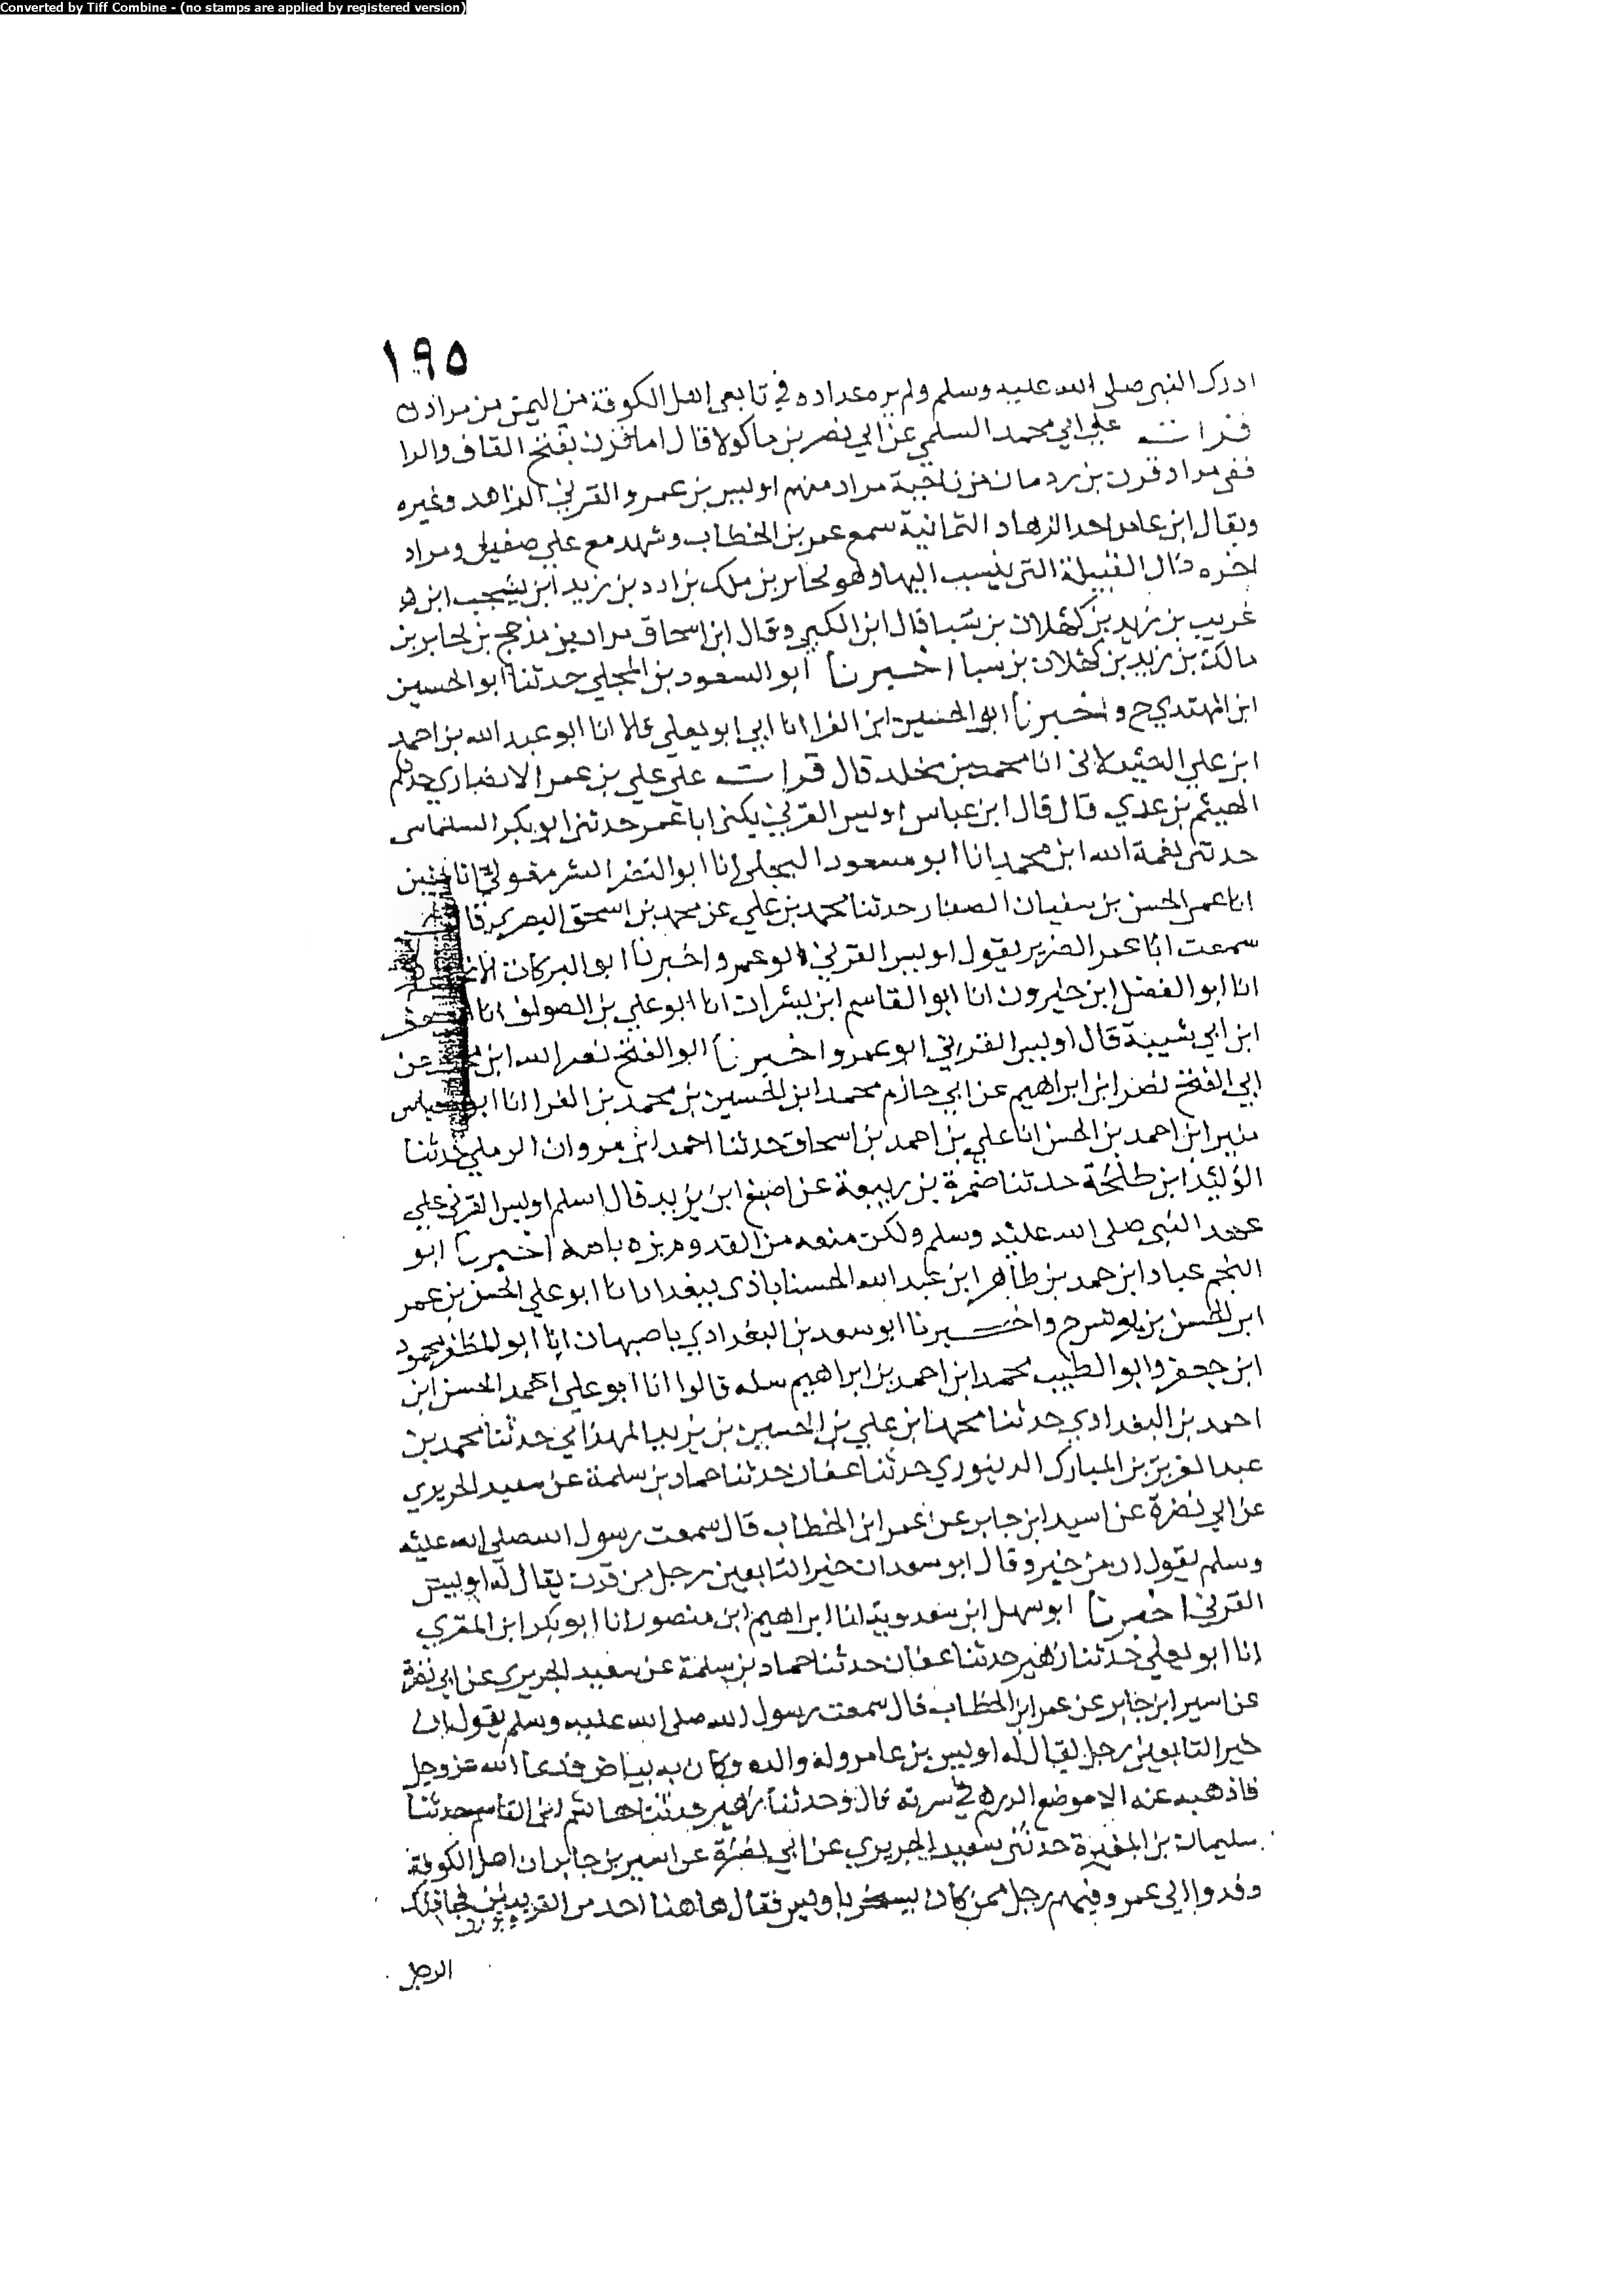 Converted by Tiff Combine - (no stamps are applied by registered version)
١٩٥
ادرك النبي صلى الله عليه وسلم ولم يره عداده في تابعي اهل الكوفة من اليمن من مراد
قرات على ابي محمد السلمي عن ابي نصر بن ماكولا قال اما قرن بفتح القاف والرا
ففي مراد قرن بن ردمان بن ناجية مراد منهم اويس بن عمرو القرني الزاهد وغيره
ويقال ابن عامر احد الزهاد الثمانية سمع عمر بن الخطاب وشهد مع علي صفين ومراد
القبيلة التي ينسب اليها وهو يحابر بن ملك بن ادد بن زيد ابن يشجب ابن
غريب بن زيد بن كهلان بن سبا قال ابن الكلبي وقال ابن اسحاق مراد بن مذحج بن يحابر بن
مالك بن زيد بن كهلان بن سبا اخبرنا ابو السعود بن المجلي حدثنا ابو الحسين
ابن المهتدي ح واخبرنا ابو الحسين ابن الفرا انا ابي ابو يعلى قالا انا ابو عبد الله بن احمد
ابن علي الصيدلاني انا محمد بن مخلد قال قرات على علي بن عمر الانصاري حدثكم
الهيثم بن عدي قال قال ابن عباس اويس القرني يكنى ابا عمر حدثني ابو بكر السلماسي
حدثني نعمة الله ابن محمد انا ابو مسعود البجلي انا ابو
انا عمي الحسن بن سفيان الصفار حدثنا محمد بن علي عن محمد بن اسحق البصري قال
سمعت ابا عمر الضرير يقول اويس القرني ابو عمرو اخبرنا ابو البركات
انا ابو الفضل ابن خيرون انا ابو القاسم ابن بشران انا ابو علي بن الصواف انا
ابن ابي شيبة قال اويس القرني ابو عمرو اخبرنا ابو الفتح نصر الله ابن عن
ابي الفتح نصر ابن ابراهيم عن ابي حازم محمد ابن الحسين بن محمد بن الفرا انا ابو
منير ابن احمد بن الحسن انا علي بن احمد بن اسحاق حدثنا احمد ابن مروان الرملي حدثنا
الوليد ابن طلحة حدثنا ضمرة بن ربيعة عن اصبغ ابن يزيد قال اسلم اويس القرني على
عهد النبي صلى الله عليه وسلم ولكن منعه من القدوم بره بامه اخبرنا ابو
النجم عباد ابن حمد بن طاهر ابن عبد الله الحسناباذى ببغداد انا ابو علي الحسن بن عمر
ابن الحسن بن يونس ح واخبرنا ابو سعد بن البغدادي باصبهان انا ابو المظفر محمود
ابن جعفر وابو الطيب محمد ابن احمد بن ابراهيم سله قالوا انا ابو علي احمد الحسن ابن
احمد بن البغدادي حدثنا محمد ابن علي بن الحسين بن يزيد الهمذاني حدثنا محمد بن
عبد العزيز بن المبارك الدينوري حدثنا عفان حدثنا حماد بن سلمة عن سعيد الجريري
عن ابي نضرة عن اسيد ابن جابر عن عمر ابن الخطاب قال سمعت رسول الله صلى الله عليه
وسلم يقول ان من خير وقال ابو سعد ان خير التابعين رجل من قرن يقال له اويس
القرني اخبرنا ابو سهل ابن سعدويه انا ابراهيم ابن منصور انا ابو بكر ابن المقري
انا ابو يعلى حدثنا زهير حدثنا عفان حدثنا حماد بن سلمة عن سعيد الجريري عن ابي نضرة
عن اسير ابن جابر عن عمر ابن الخطاب قال سمعت رسول الله صلى الله عليه وسلم يقول ان
خير التابعين رجل يقال له اويس بن عامر وله والده وكان به بياض فدعا الله عز وجل
فاذهبه عنه الا موضع الدرهم في سرته قال وحدثنا زهير حدثنا هاشم ابن القاسم حدثنا
سليمان بن المغيرة حدثني سعيد الجريري عن ابي نضرة عن اسير بن جابر ان اهل الكوفة
وفدوا الى عمر وفيهم رجل ممن كان يسخر باويس فقال هاهنا احد من القرنيين فجا ذلك
الرجل